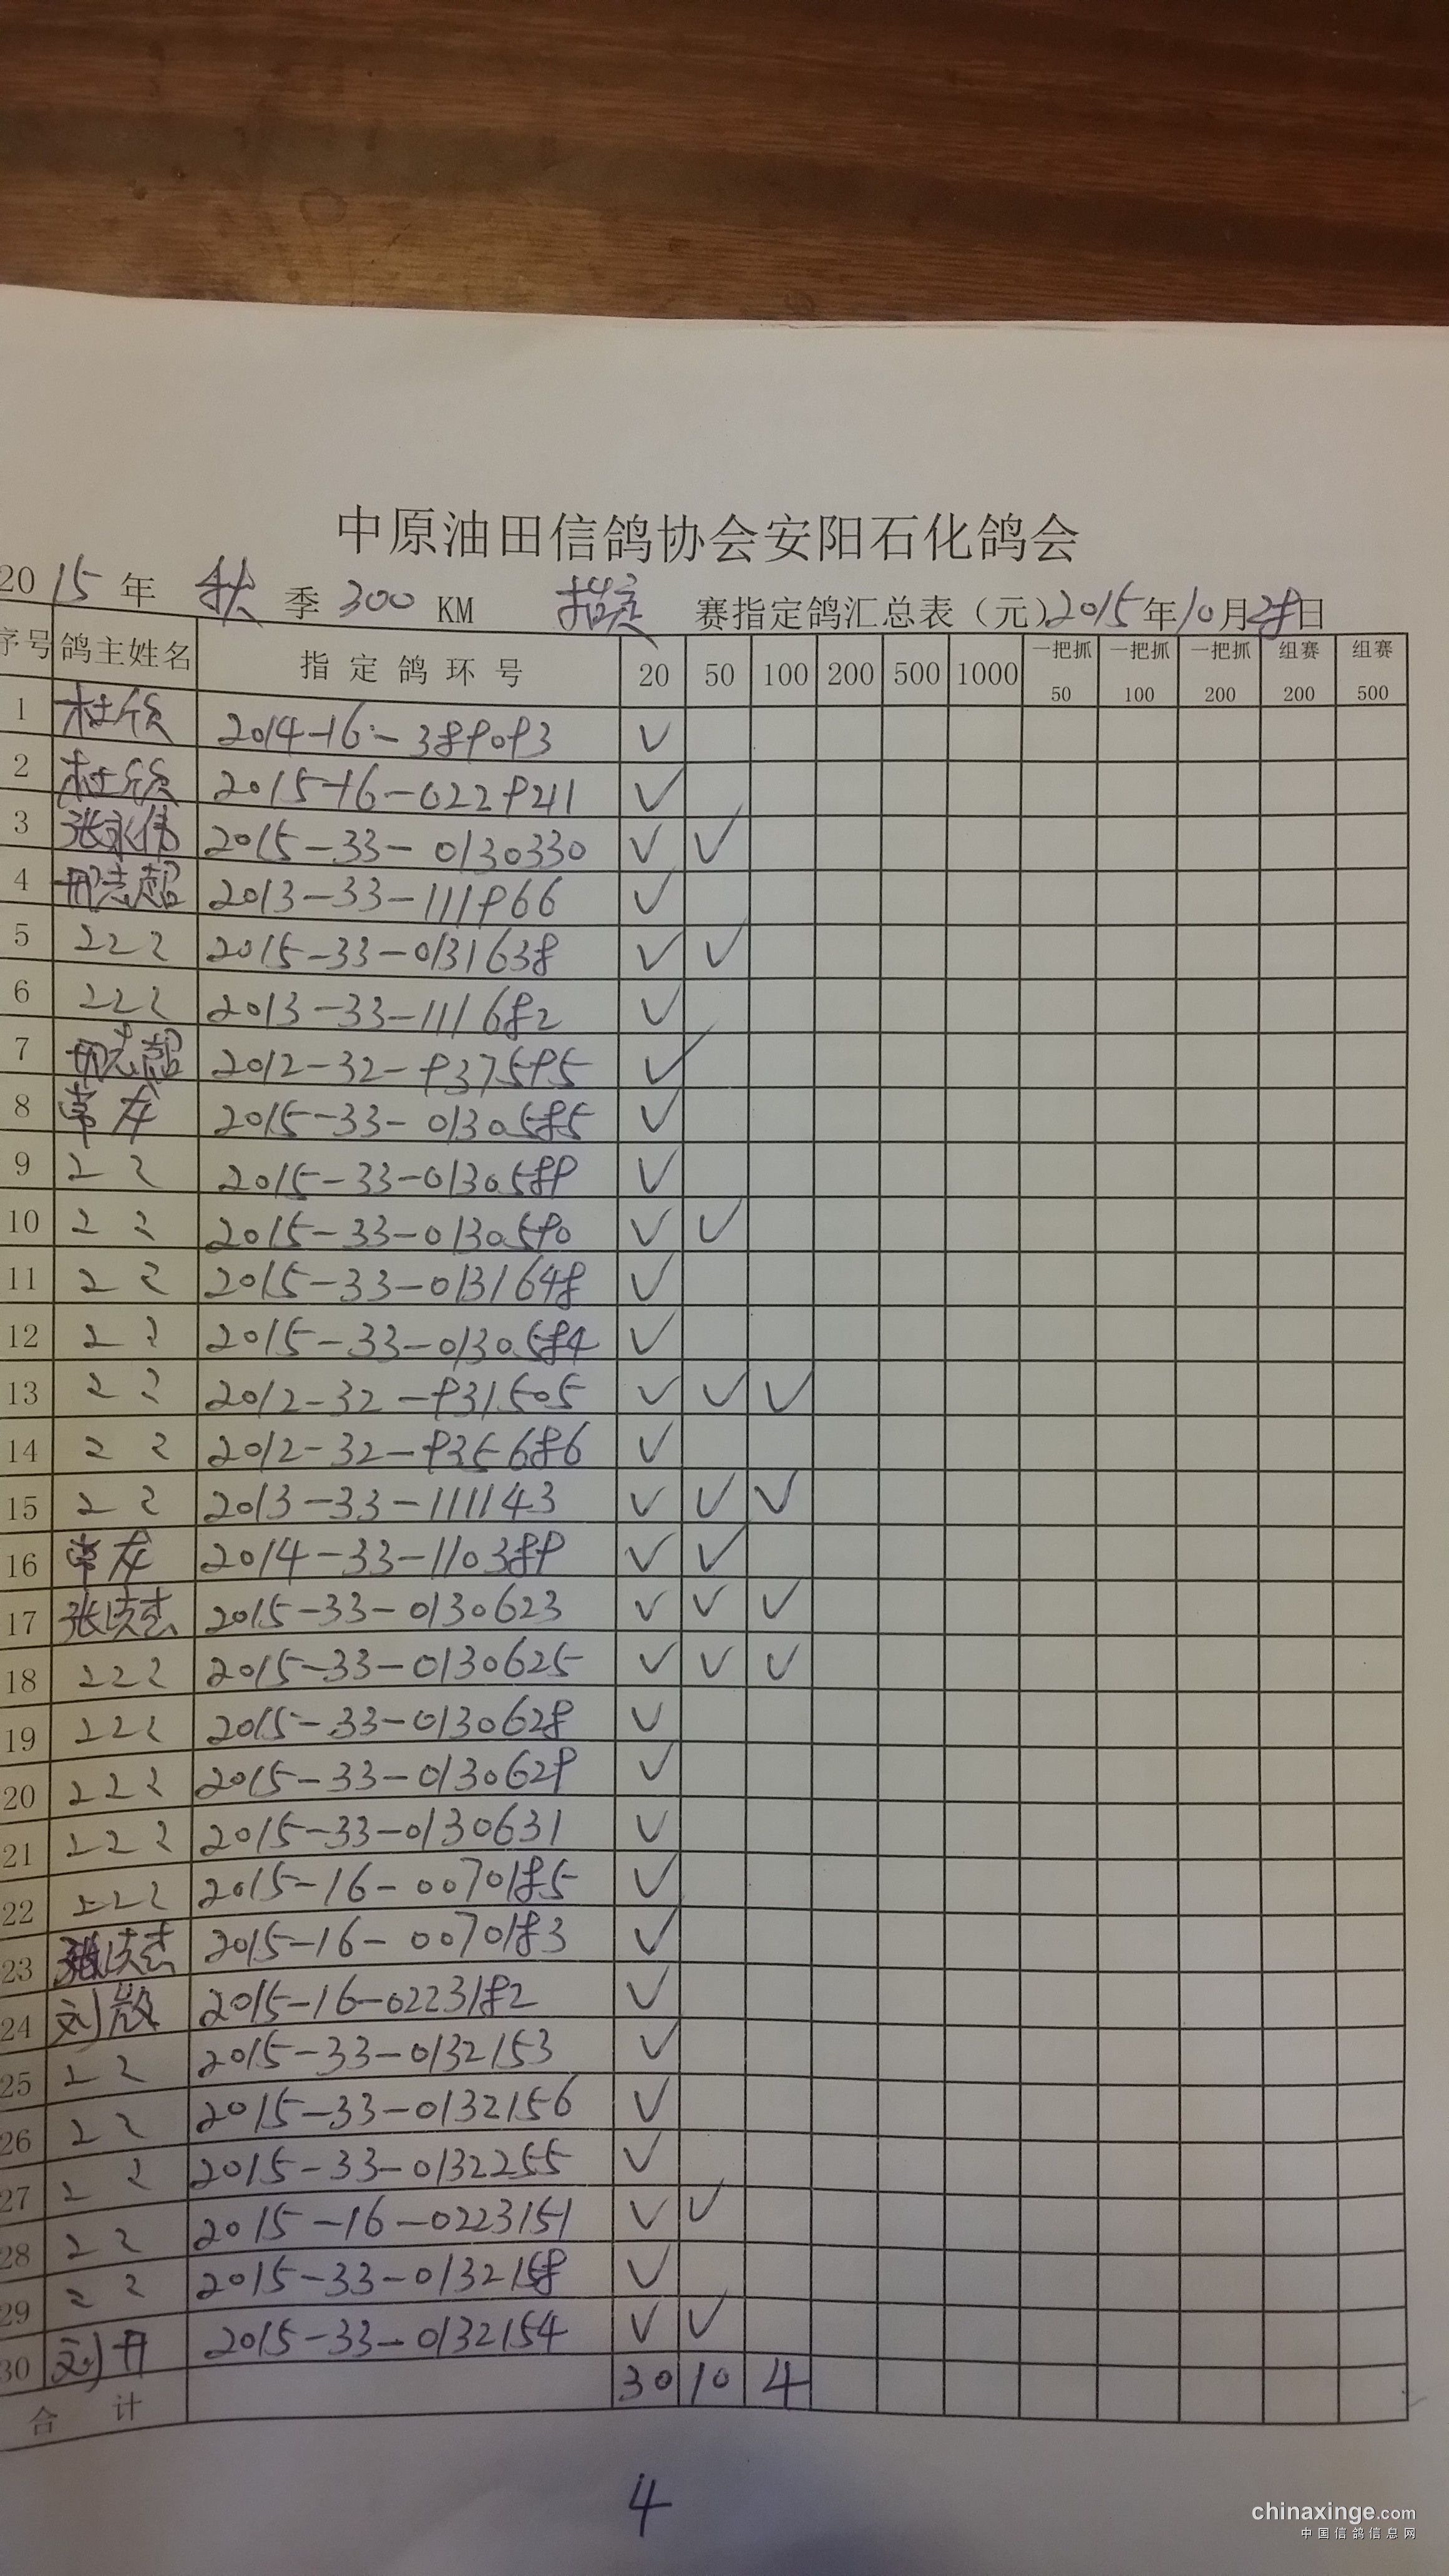 中原油田信鸽协会安阳石化鸽会
2015年 秋 季 300 KM 指定 赛指定鸽汇总表（元）2015年10月28日
序号 鸽主姓名 指定鸽环号 20 50 100 200 500 1000 一把抓50 一把抓100 一把抓200 组赛200 组赛500
1 杜欣 2014-16-389093 √
2 杜欣 2015-16-0229211 √
3 张永伟 2015-33-0130330 √ √
4 邢志超 2013-33-111966 √
5 2 2 2 2015-33-0131638 √ √
6 2 2 2 2013-33-111682 √
7 邢志超 2012-32-937595 √
8 常龙 2015-33-0130585 √
9 2 2 2015-33-0130589 √
10 2 2 2015-33-0130590 √ √
11 2 2 2015-33-0131648 √
12 2 2 2015-33-0130584 √
13 2 2 2012-32-931505 √ √ √
14 2 2 2012-32-935686 √
15 2 2 2013-33-111143 √ √ √
16 常龙 2014-33-110389 √ √
17 张 2015-33-0130623 √ √ √
18 2 2 2 2015-33-0130625 √ √ √
19 2 2 2 2015-33-0130628 √
20 2 2 2 2015-33-0130629 √
21 2 2 2 2015-33-0130631 √
22 2 2 2 2015-16-0070185 √
23 张 2015-16-0070183 √
24 刘 2015-16-0223182 √
25 2 2 2015-33-0132153 √
26 2 2 2015-33-0132156 √
27 2 2 2015-33-0132255 √
28 2 2 2015-16-0223151 √ √
29 2 2 2015-33-0132158 √
30 刘丹 2015-33-0132154 √ √
合 计 30 10 4
4
chinaxinge.com
中国信鸽信息网